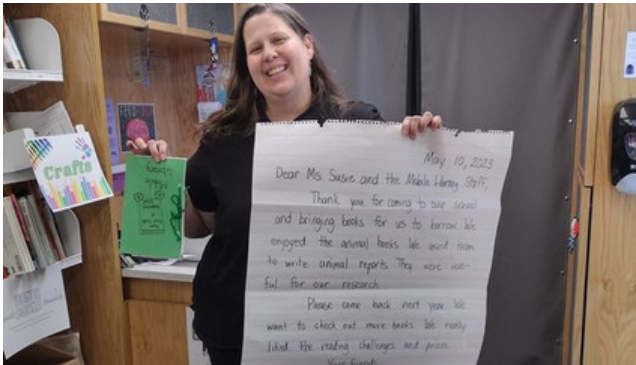 Crafts
Mobile
Library
May 10, 2023
Dear Ms Susie and the Mobile Library Staff,
Thank you for coming to our school
and bringing books for us to borrow. We
enjoyed the animal books. We used them
to write animal reports. They were use-
ful for our research.
Please come back next year. We
want to check out more books. We really
liked the reading challenges and prizes.
Your friends